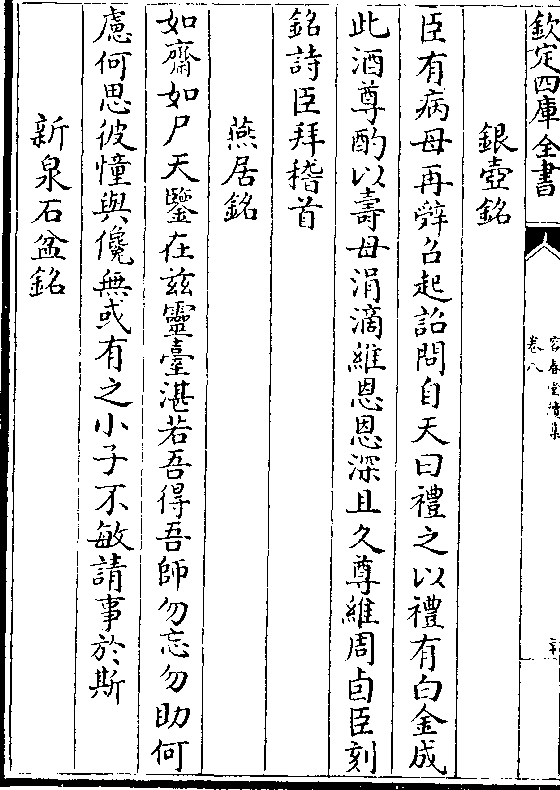 欽定四庫全書
容春堂續集
卷八
銀壺銘
臣有病母再辭召起詔問自天曰禮之以禮有白金成
此酒尊酌以壽母涓滴維恩恩深且久尊維周卣臣刻
銘詩臣拜稽首
燕居銘
如齋如尸天鑒在兹靈臺湛若吾得吾師勿忘勿助何
慮何思彼憧與儳無或有之小子不敏請事於斯
新泉石盆銘